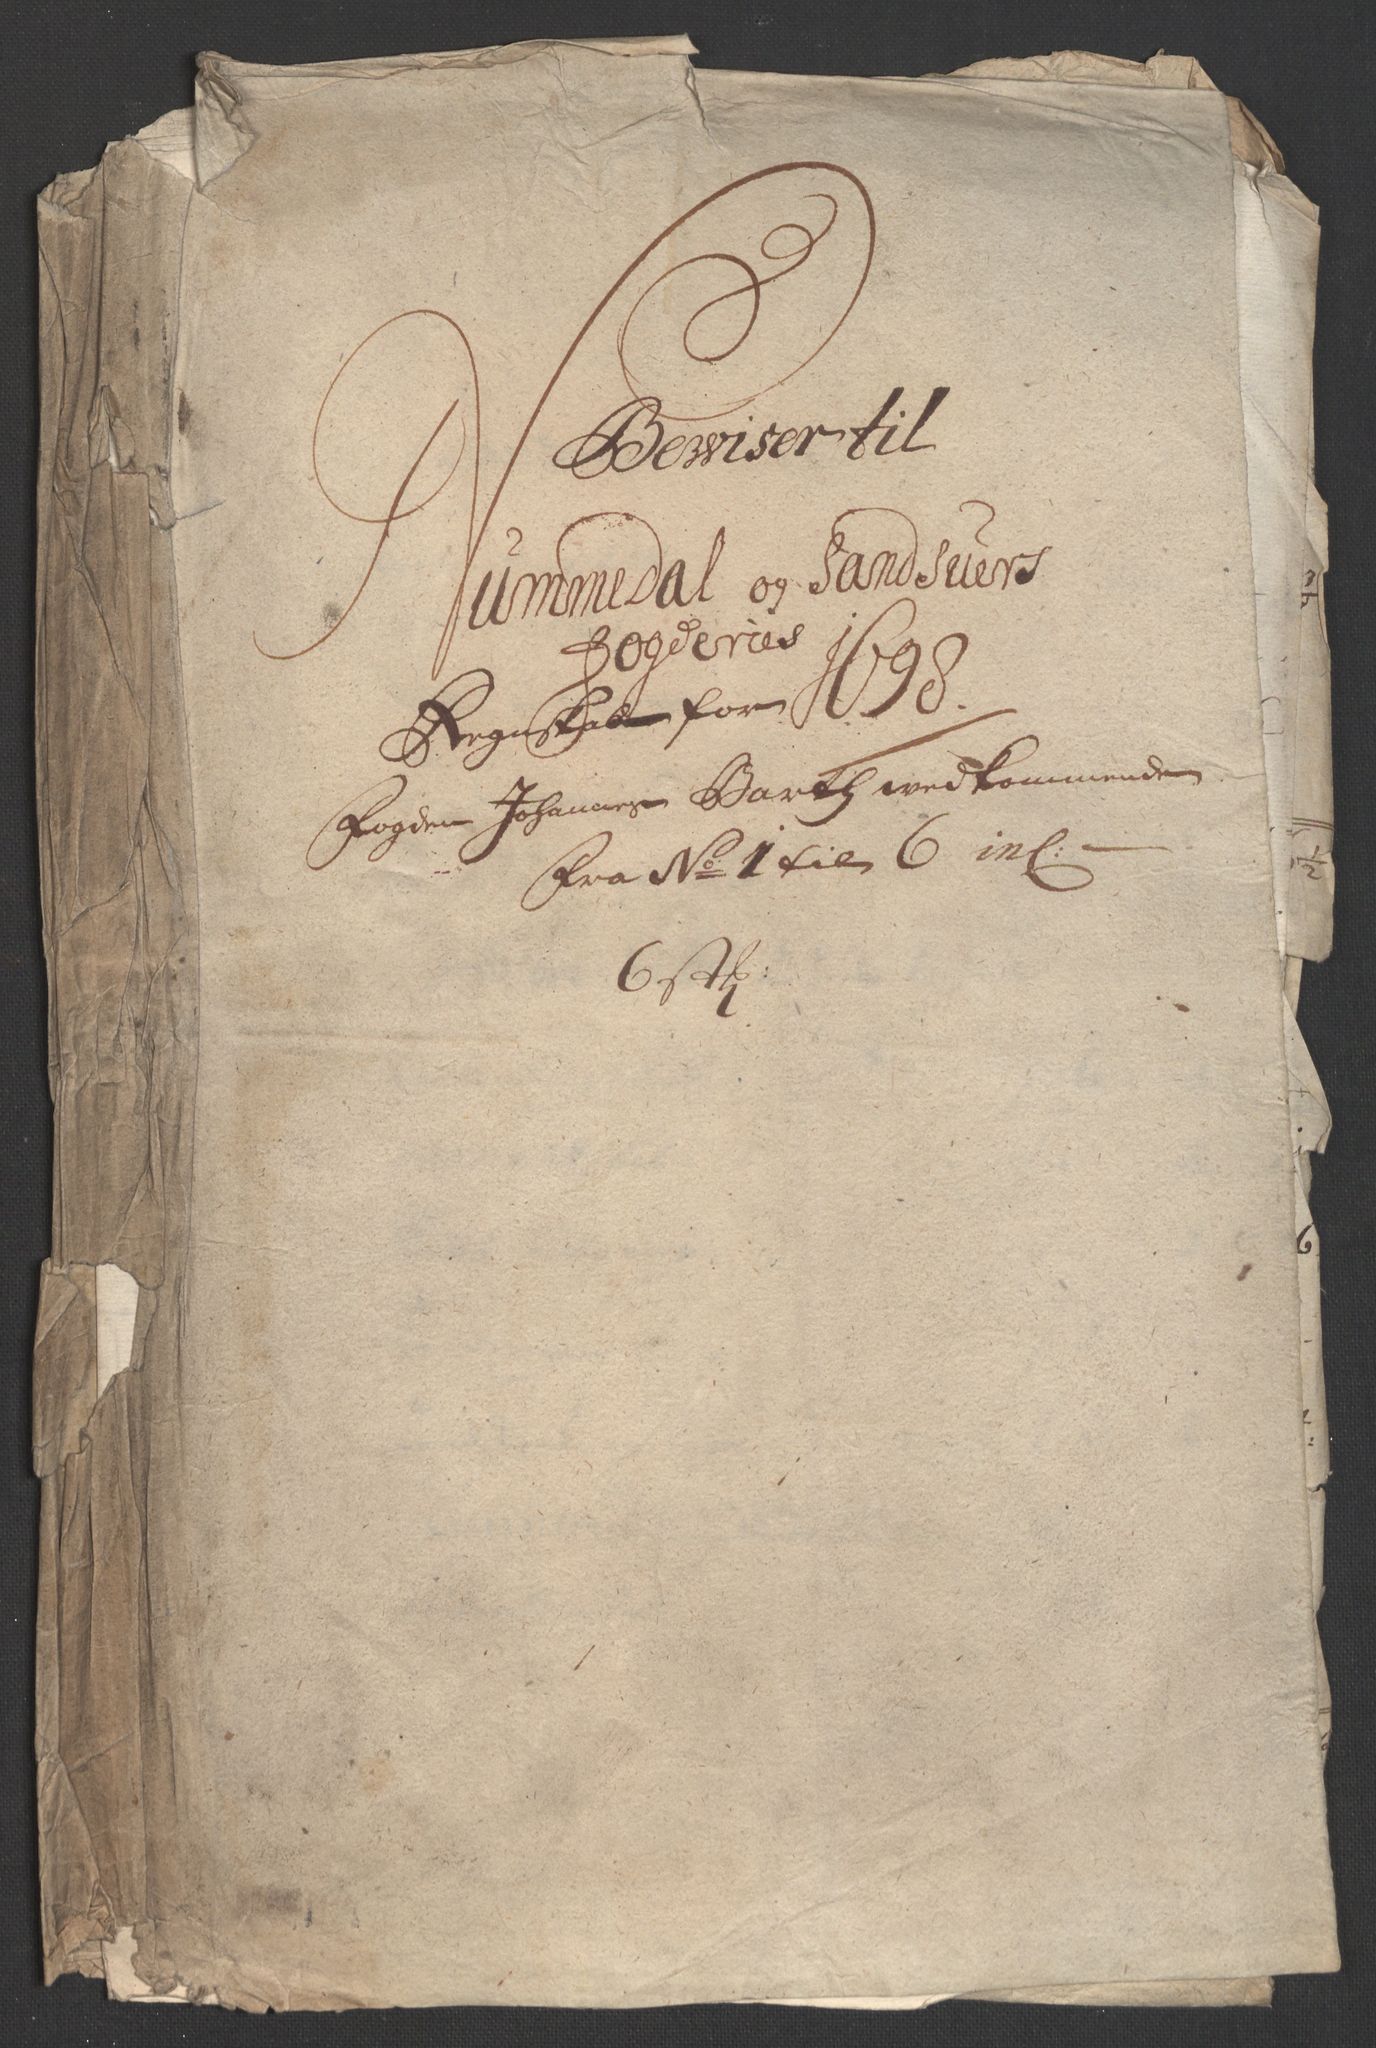 Bewiser til
Nummedal og Sandsuers
Fogderies
Regnskab for 1698.
Fogden Johannes Barth wedkommende
Fra No: 1 til 6 inl:
6 stk: